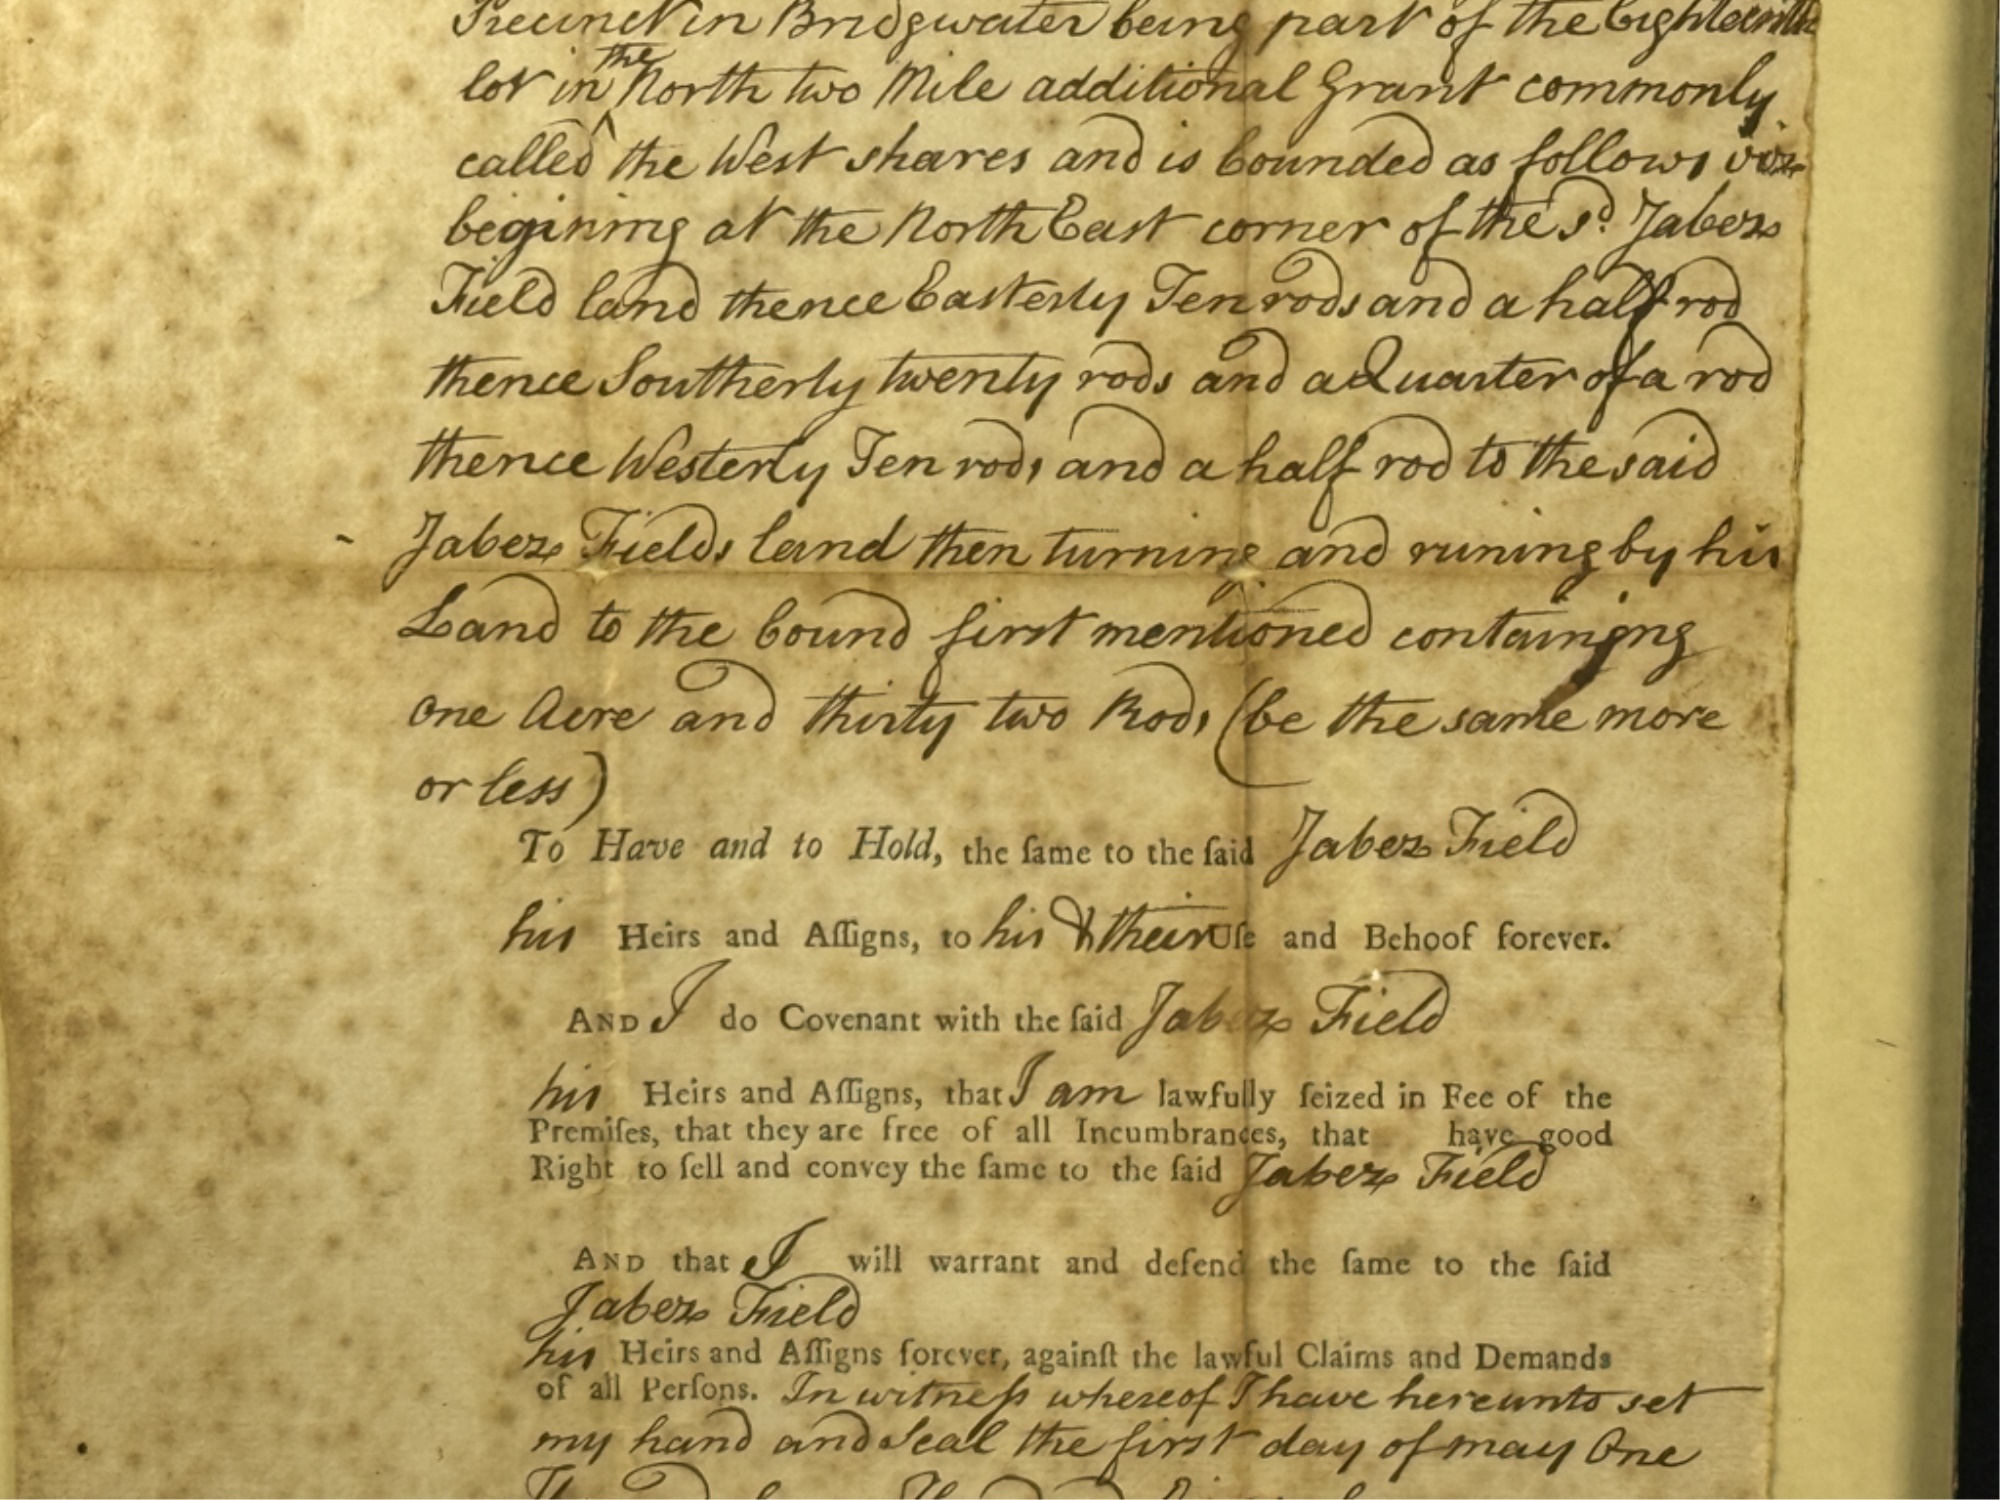 Precinct in Bridgwater being part of the Eighteenth
the
lot in North two Mile additional Grant commonly
called the West shares and is bounded as follows viz
begining at the North East corner of the sd. Jabez
Field land thence Easterly Ten rods and a half rod
thence Southerly twenty rods and a Quarter of a rod
thence Westerly Ten rods and a half rod to the said
Jabez Fields land then turning and runing by his
Land to the bound first mentioned containgng
one Acre and thirty two Rods (be the same more
or less)
To Have and to Hold, the ſame to the ſaid Jabez Field
his Heirs and Aſſigns, to his & their Uſe and Behoof forever.
AND I do Covenant with the ſaid Jabez Field
his Heirs and Aſſigns, that I am lawfully ſeized in Fee of the
Premiſes, that they are free of all Incumbrances, that have good
Right to ſell and convey the ſame to the ſaid Jabez Field
AND that I will warrant and defend the ſame to the ſaid
Jabez Field
his Heirs and Aſſigns forever, againſt the lawful Claims and Demands
of all Perſons. In witneſs whereof I have hereunto set
my hand and Seal the first day of may One